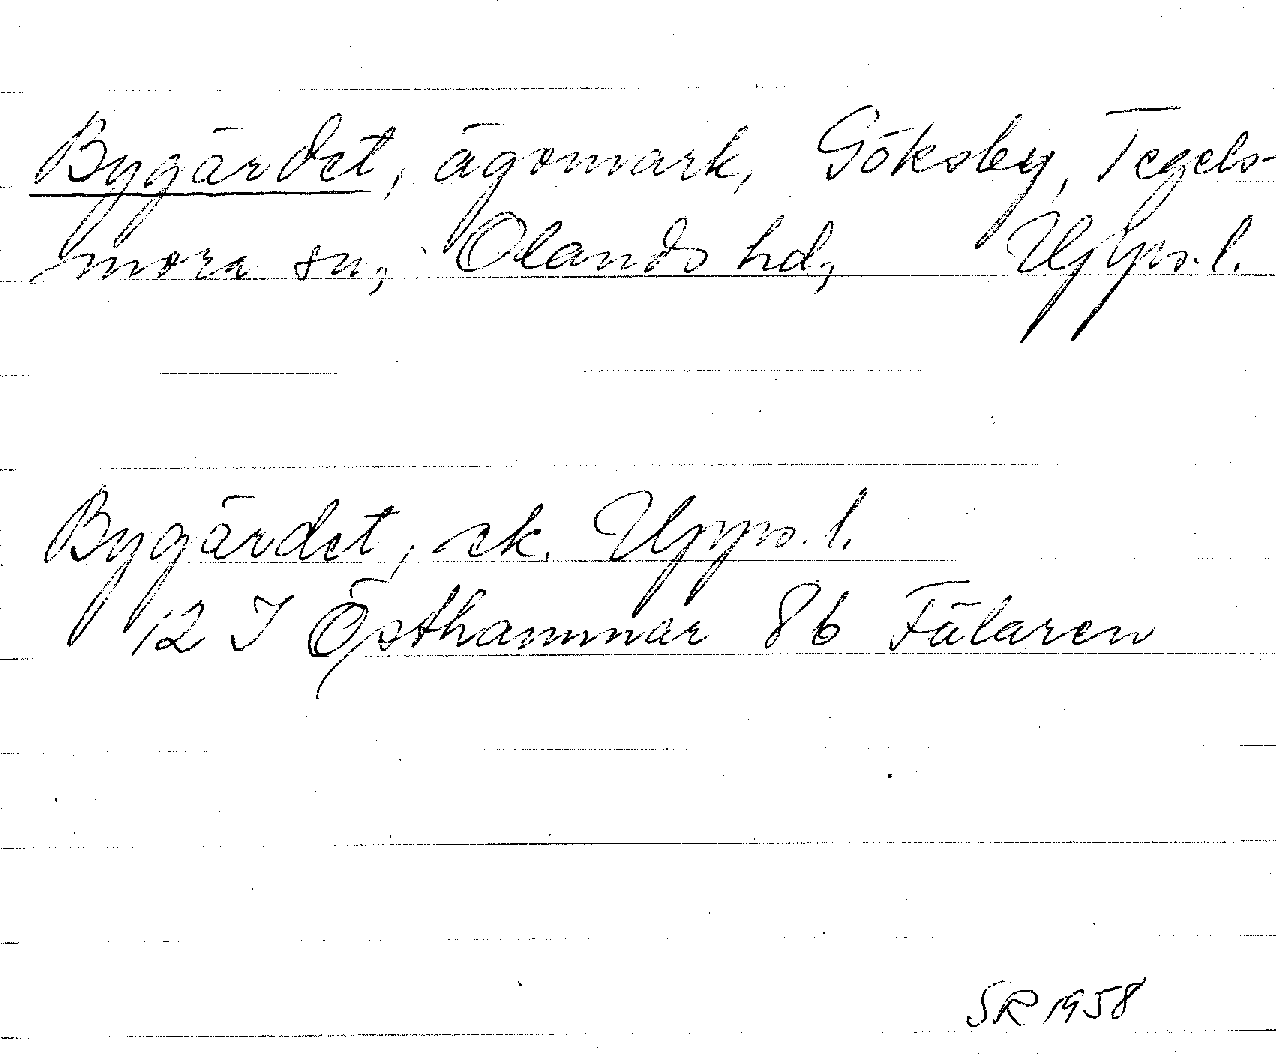 Bygärdet, ägomark, Göksby, Tegels-
mora sn, Olands hd, Upps.l.
Bygärdet, ek. Upps.l.
12 I Östhammar 8b Fälaren
SR 1958